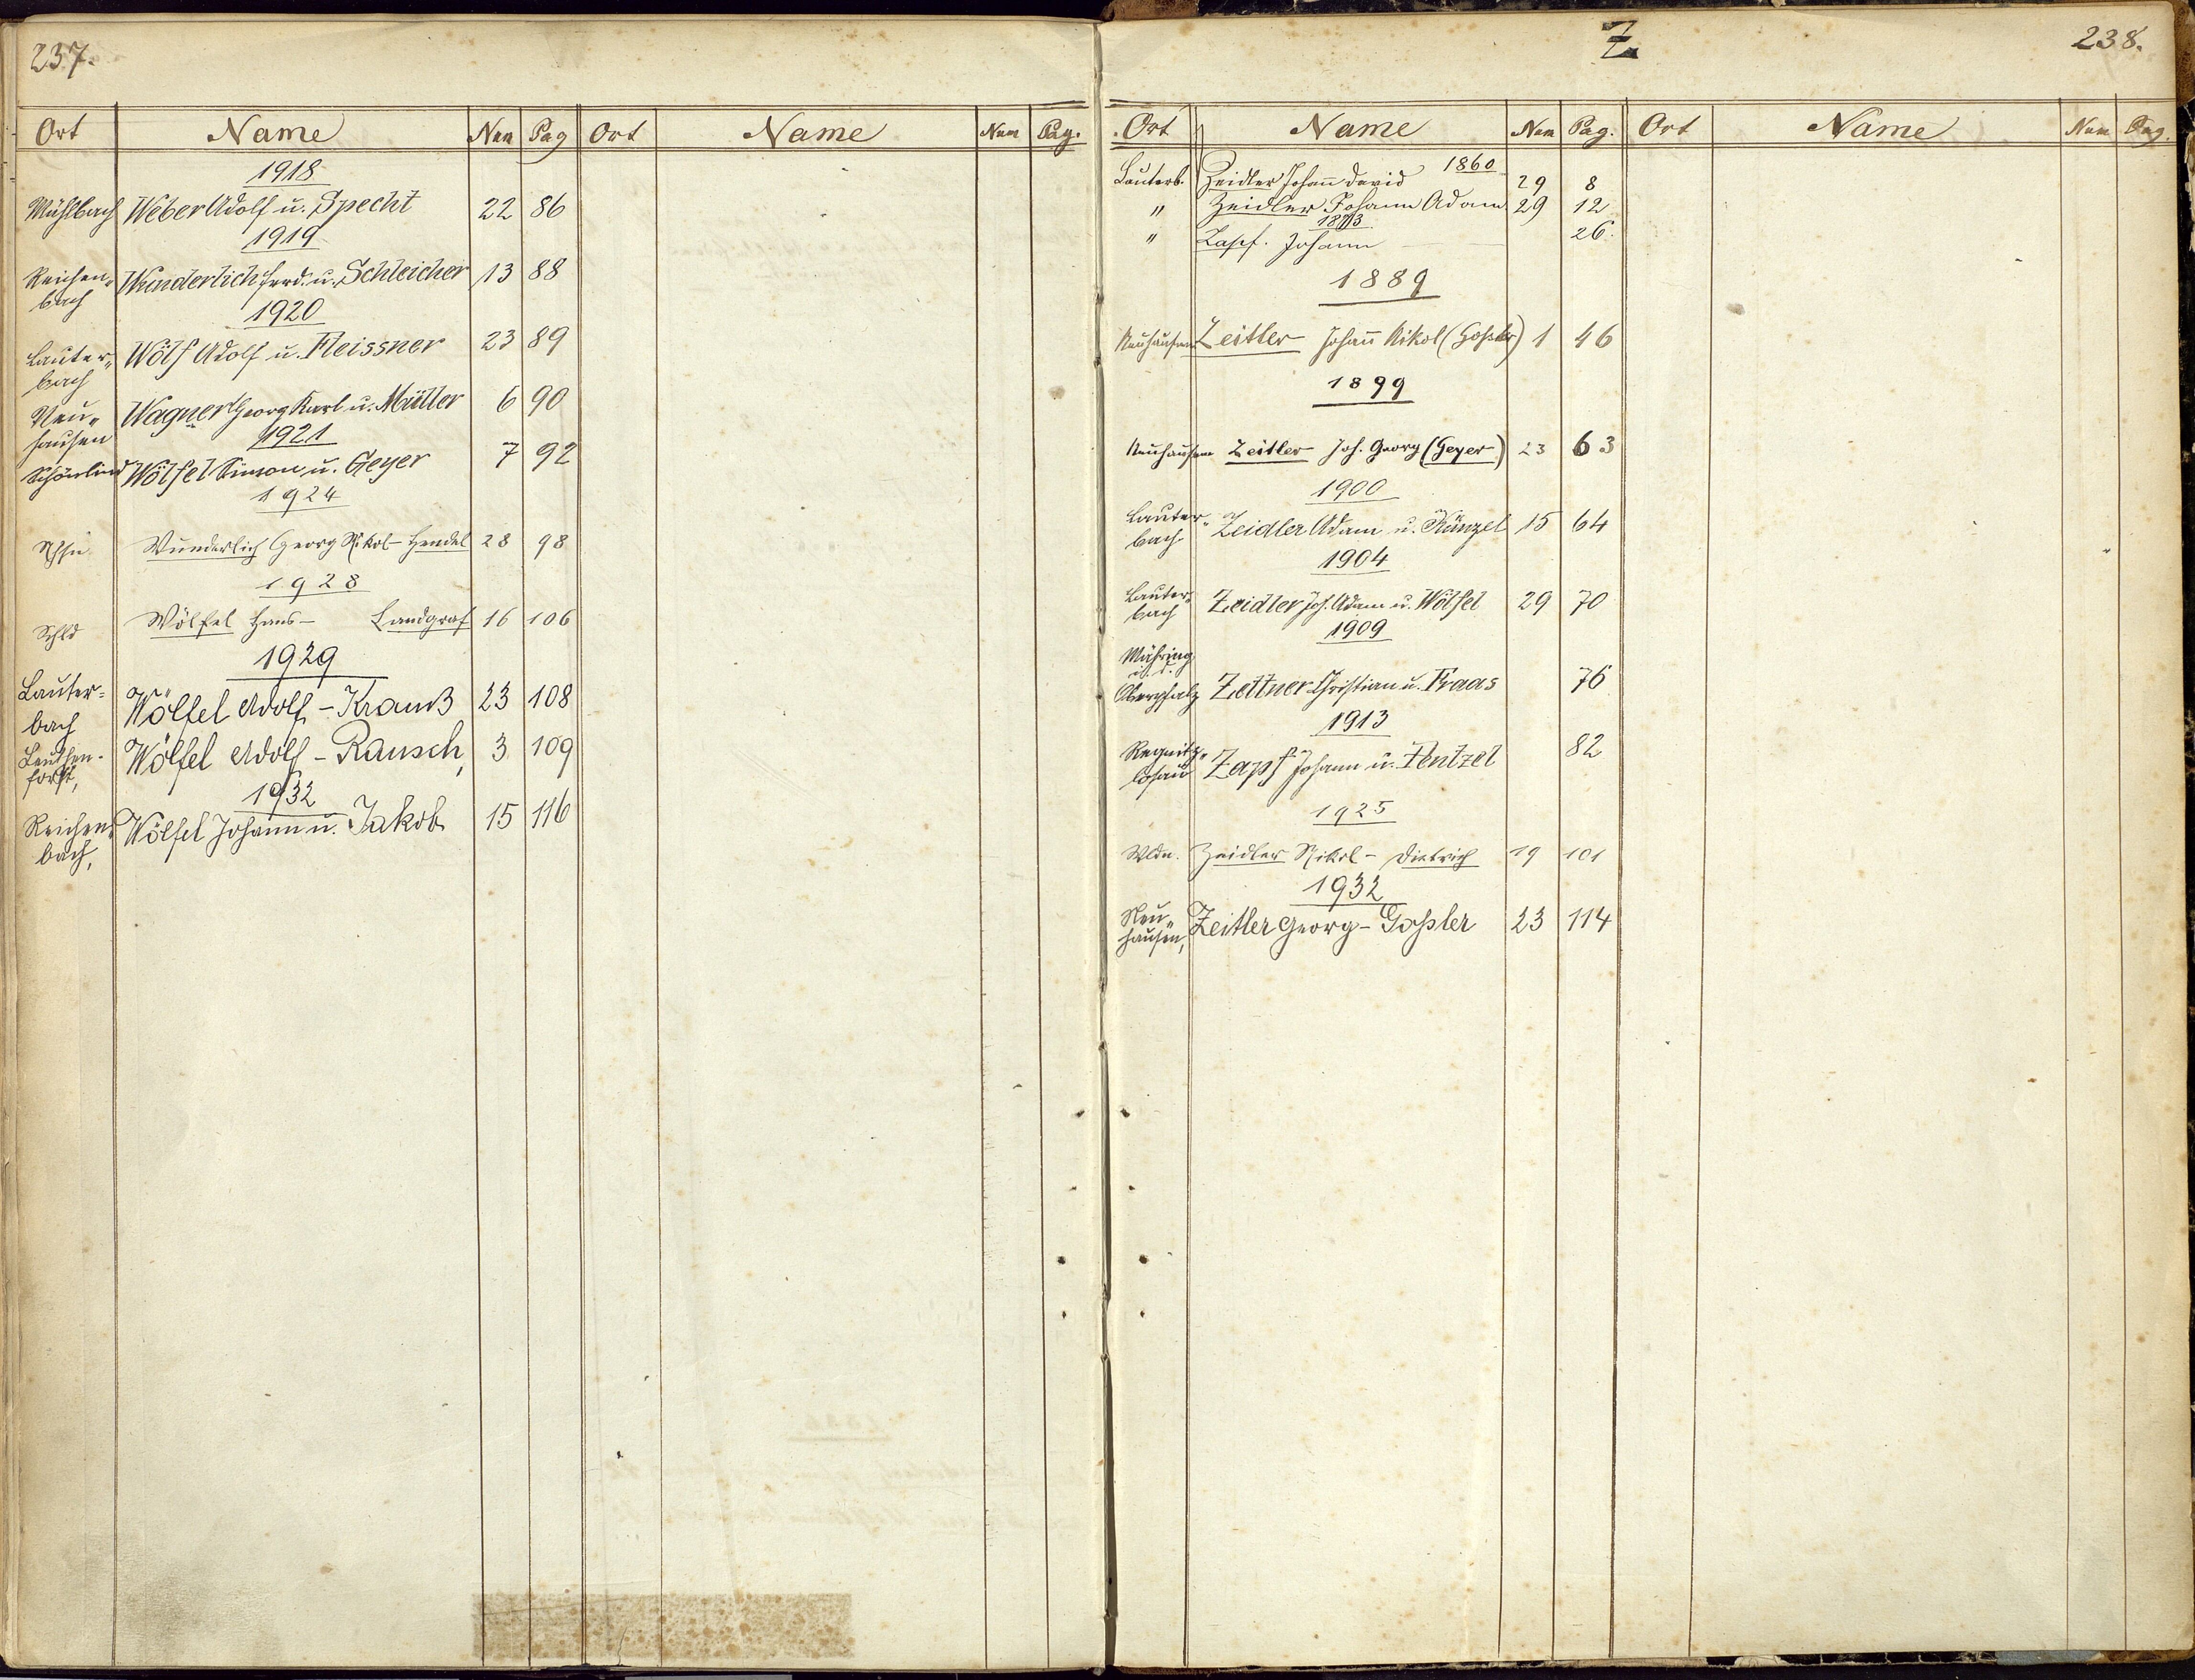 237.
Ort Name Num Pag Ort Name Num Pag.
1918
Mühlbach Weber Adolf u. Specht 22 86
1919
Reichen- Wunderlich Ferd. u. Schleicher 13 88
bach
1920
Lauter- Wölf Adolf u. Fleissner 23 89
bach
Neu- Wagner Georg Karl u. Müller 6 90
hausen
1921
Schönlind Wölfel Simon u. Geyer 7 92
1924
Nhsn. Wunderlich Georg Nikol - Hendel 28 98
1928
Schld Wölfel Hans - Landgraf 16 106
1929
Lauter- Wölfel Adolf - Krauß 23 108
bach
Leuthen- Wölfel Adolf - Rausch, 3 109
forst,
1932
Reichen- Wölfel Johann u. Jakob 15 116
bach,
Z
238.
Ort Name Num Pag. Ort Name Num Pag.
1860
Lauterb. Zeidler Johann David 29 8
" Zeidler Johann Adam 29 12
1873
" Zapf. Johann 26.
1889
Neuhausen Zeitler Johann Nikol (Goßler) 1 46
1899
Neuhausen Zeitler Joh. Georg (Geyer) 23 63
1900
Lauter- Zeidler Adam u. Künzel 15 64
bach
1904
Lauter- Zeidler Joh. Adam u. Wölfel 29 70
bach
1909
Mähring
i. d.
Oberpfalz Zettner Christian u. Fraas 76
1913
Regnitz- Zapf Johann u. Pentzel 82
losau
1925
Wldn. Zeidler Nikol - Dietrich 19 101
1932
Neu- Zeitler Georg - Goßler 23 114
hausen,